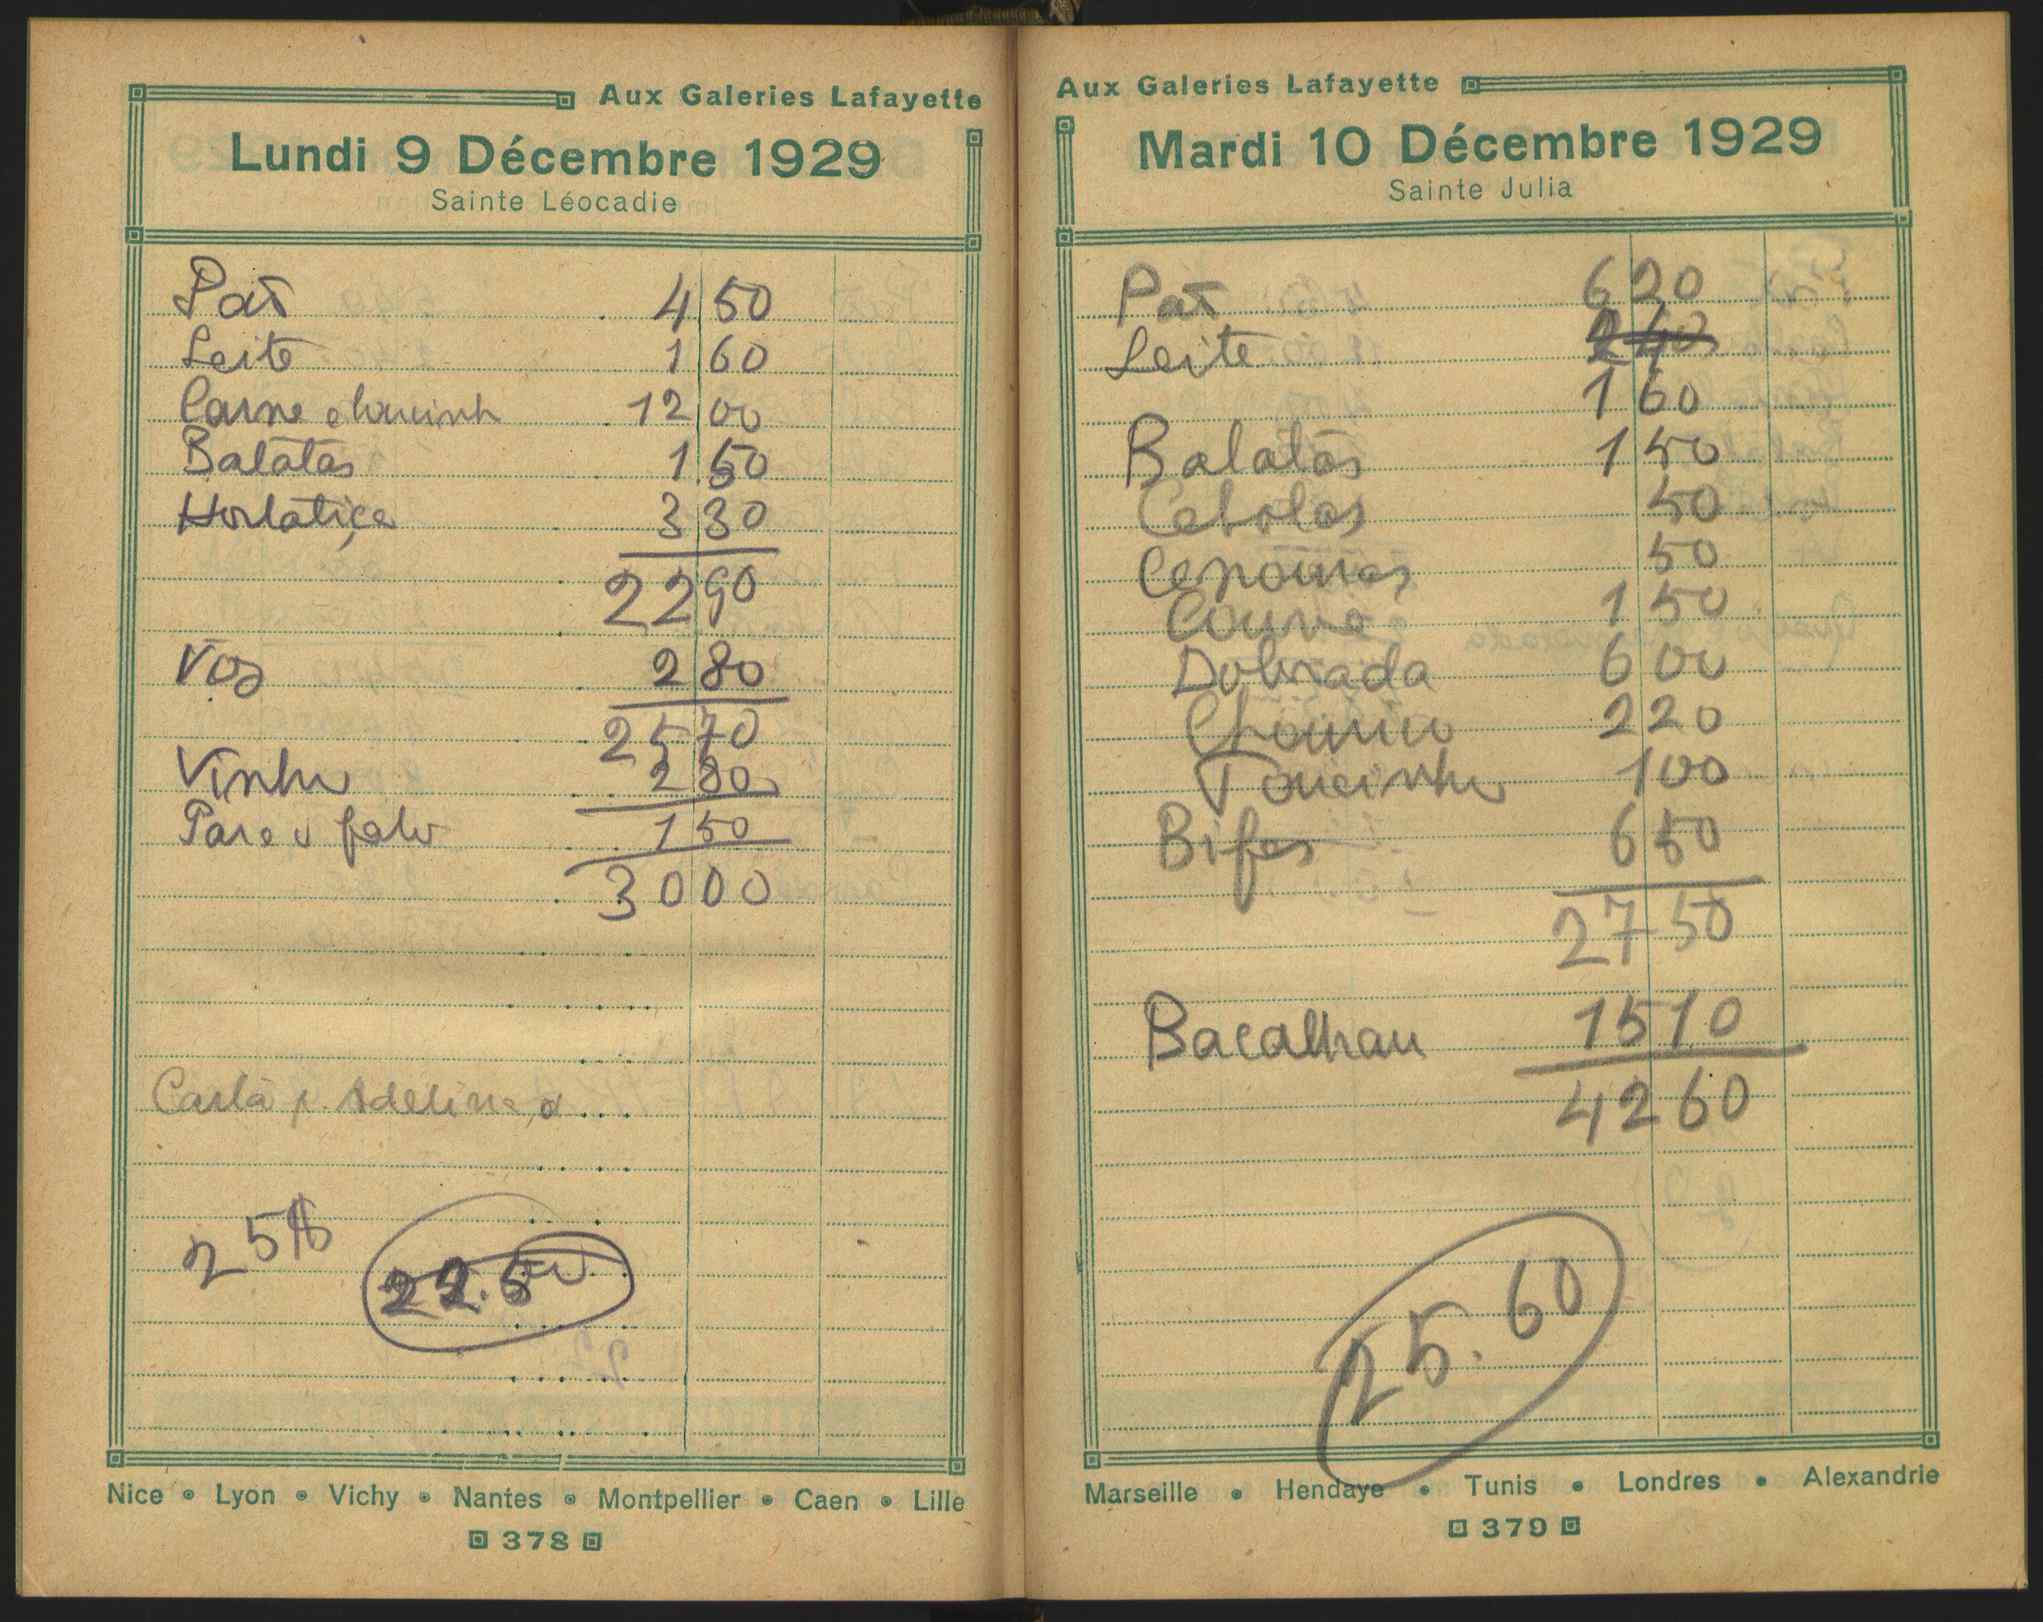 Aux Galeries Lafayette
Lundi 9 Décembre 1929
Sainte Léocadie
Pão 4 50
Leite 1 60
Carne e toucinh 12 00
Batatas 1 50
Hortaliça 3 30
22 90
2 80
25 70
Vinho 2 80
1 50
30 00
Carta p. Adelina
25$
22.50
Nice • Lyon • Vichy • Nantes • Montpellier • Caen • Lille
378
Aux Galeries Lafayette
Mardi 10 Décembre 1929
Sainte Julia
Pão 6 20
Leite 2 40
1 60
Batatas 1 50
Cebolas 50
Cenouras 50
Couve 1 50
Dobrada 6 00
Chouriço 2 20
Toucinho 1 00
Bifes 6 50
27 50
Bacalhau 15 10
42 60
25.60
Marseille • Hendaye • Tunis • Londres • Alexandrie
379